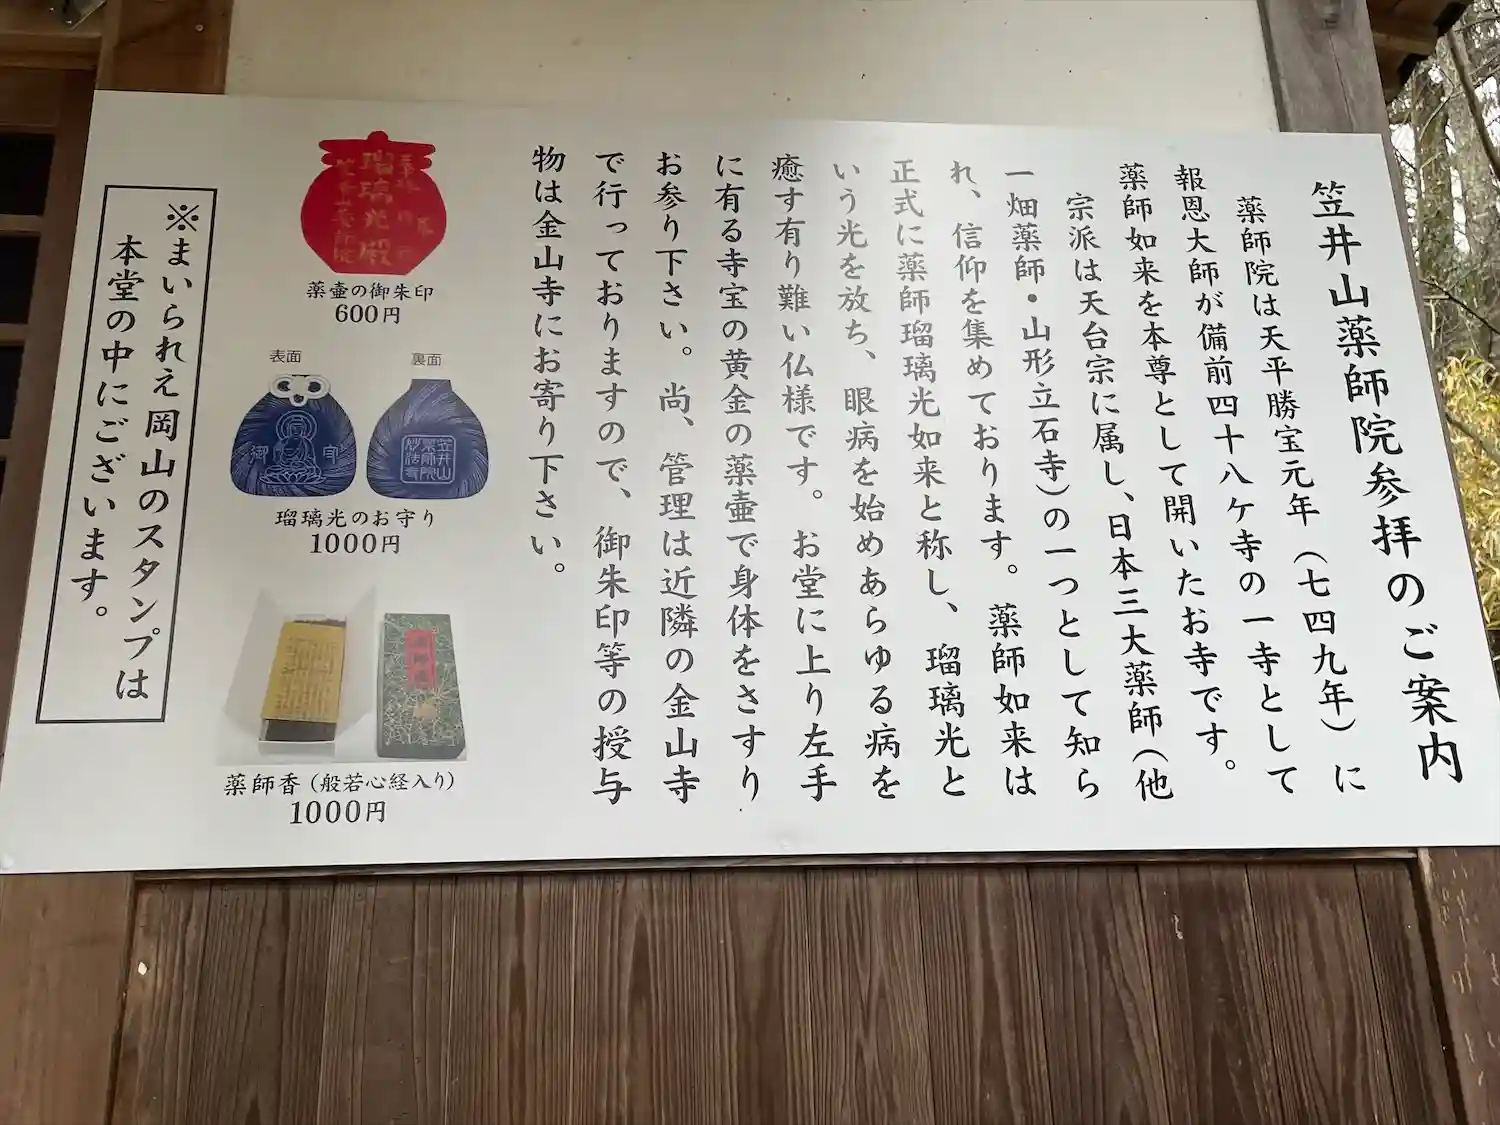 笠井山薬師院参拝のご案内
薬師院は天平勝宝元年(七四九年)に
報恩大師が備前四十八ケ寺の一寺として
薬師如来を本尊として開いたお寺です。
宗派は天台宗に属し、日本三大薬師(他
一畑薬師・山形立石寺)の一つとして知ら
れ、信仰を集めております。薬師如来は
正式に薬師瑠璃光如来と称し、瑠璃光と
いう光を放ち、眼病を始めあらゆる病を
癒す有り難い仏様です。お堂に上り左手
に有る寺宝の黄金の薬壷で身体をさすり
お参り下さい。尚、管理は近隣の金山寺
で行っておりますので、御朱印等の授与
物は金山寺にお寄り下さい。
瑠璃光殿
薬壷の御朱印
600円
表面
裏面
御守
笠井山
薬師院
妙法寺
瑠璃光のお守り
1000円
薬師香(般若心経入り)
1000円
※まいられぇ岡山のスタンプは
本堂の中にございます。